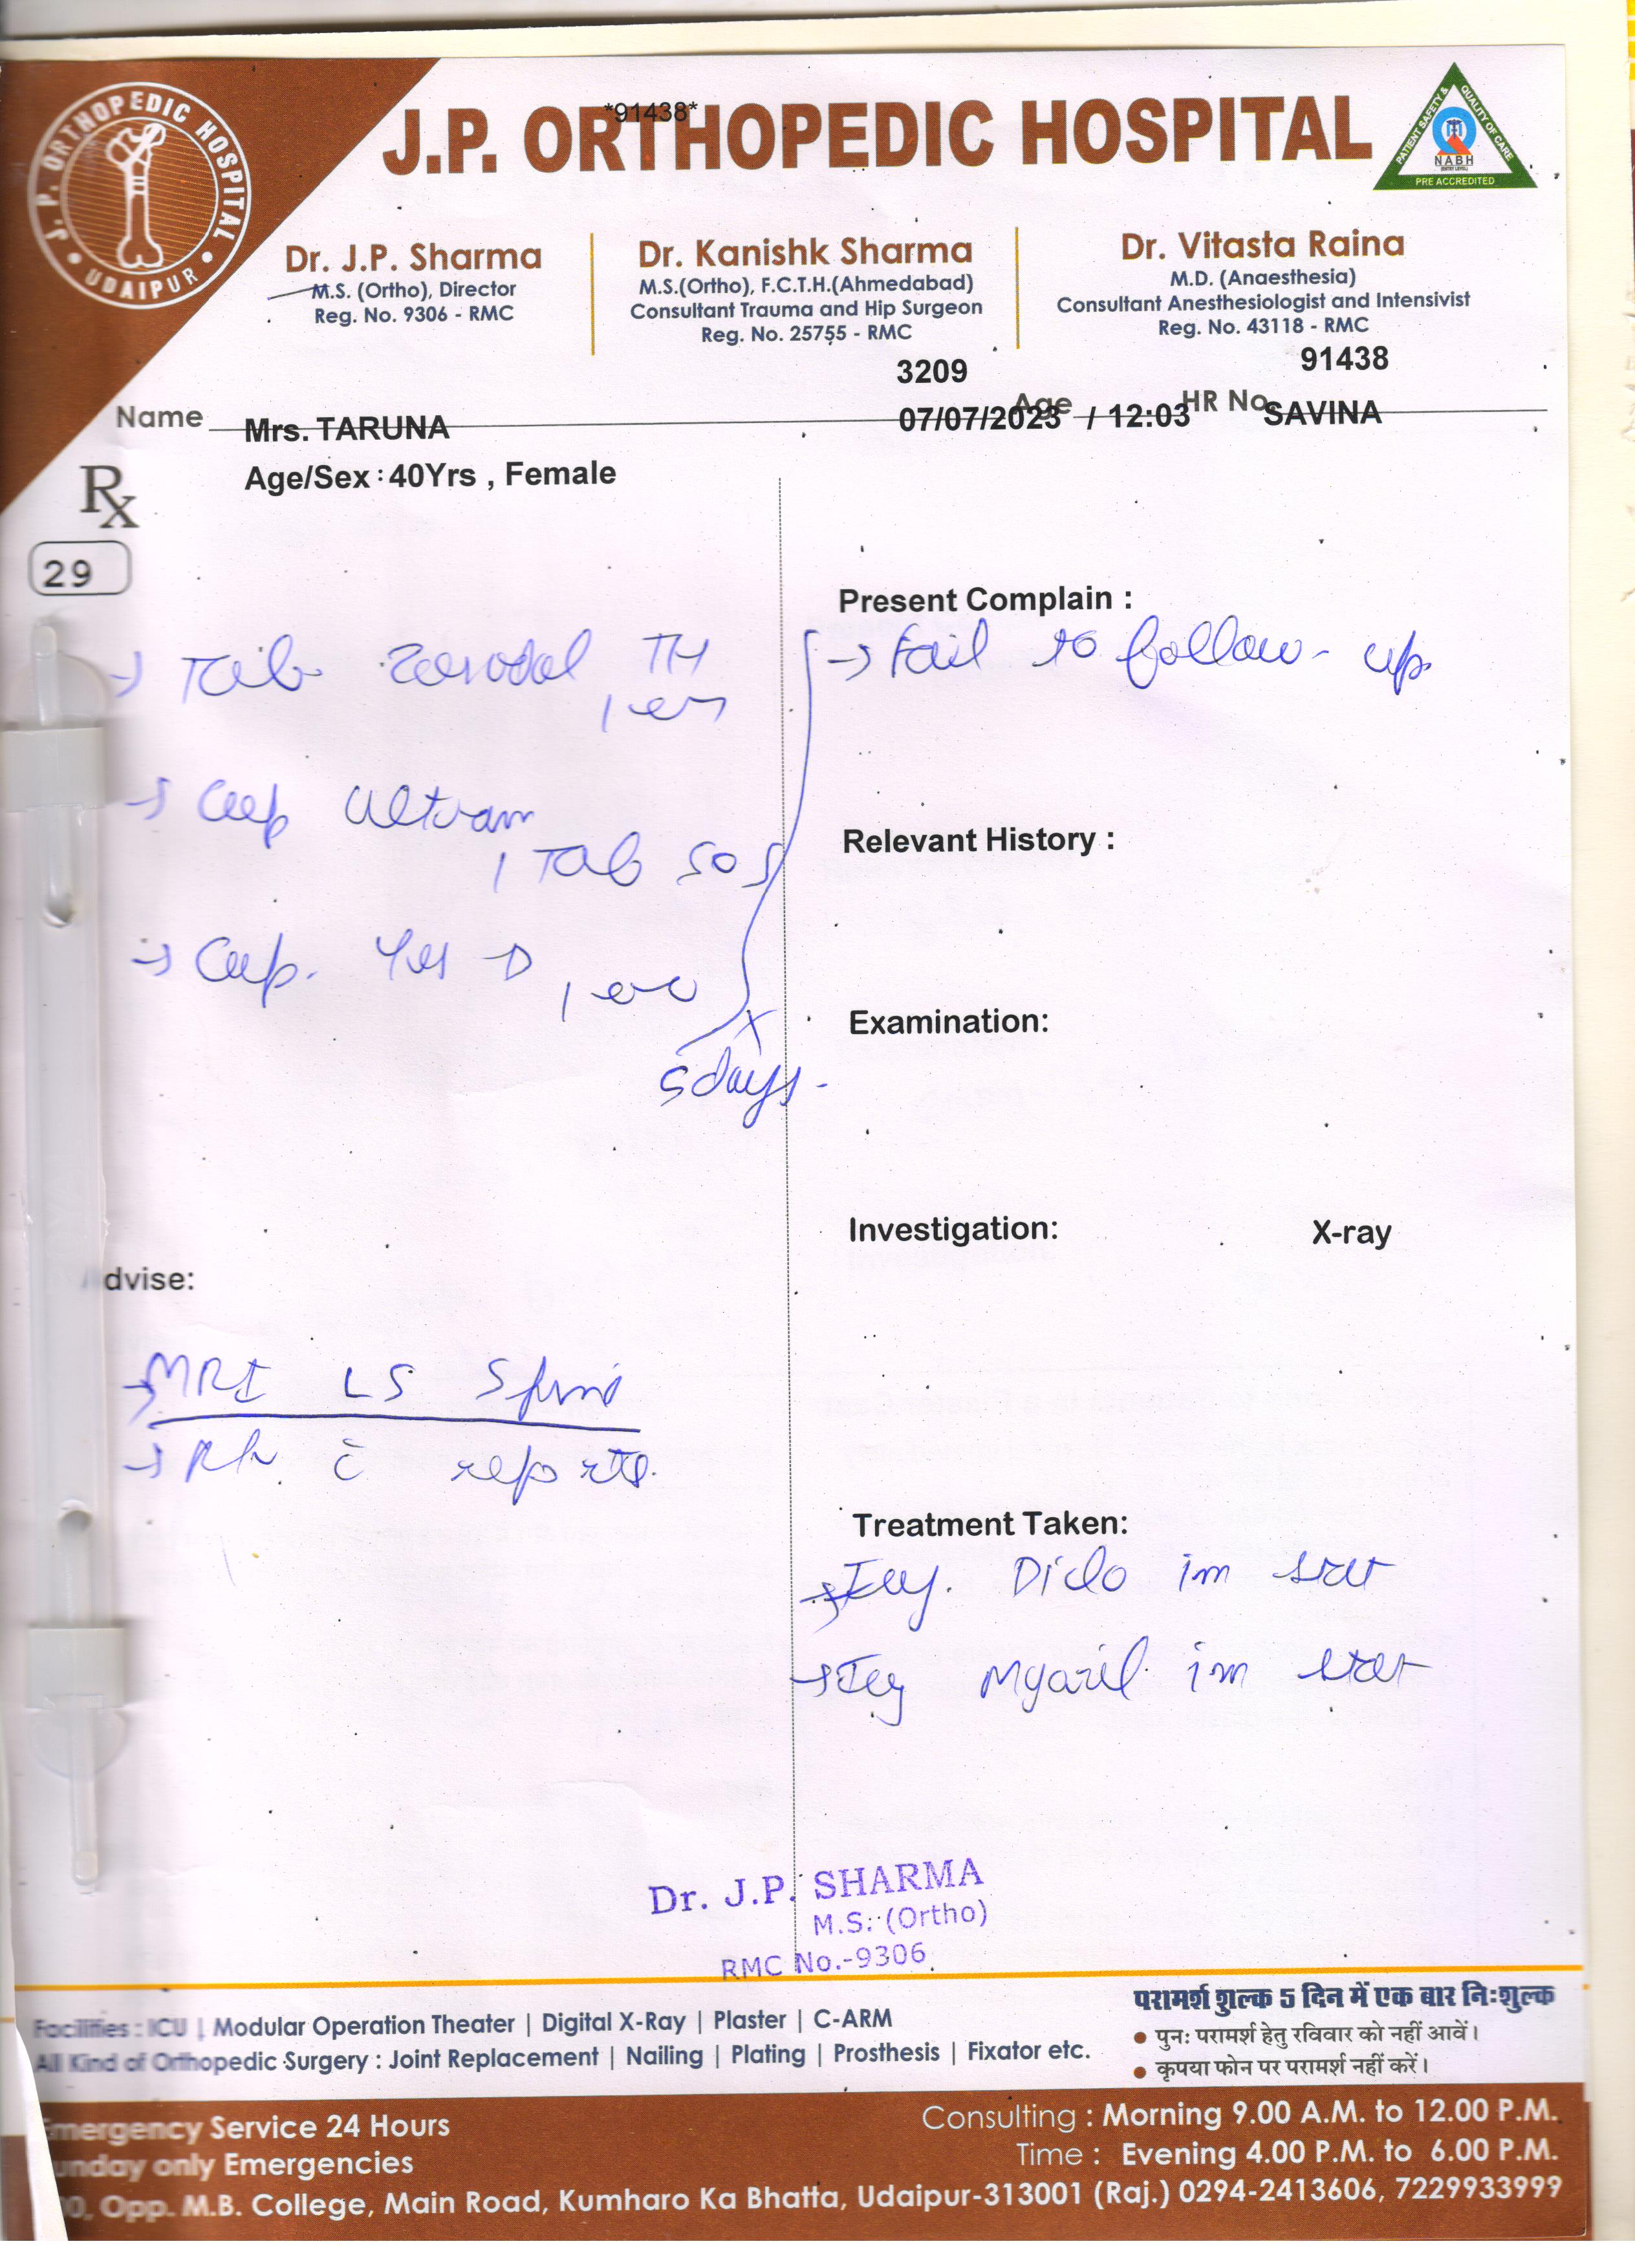 J. P. ORTHOPEDIC HOSPITAL
• UDAIPUR •
J.P. ORTHOPEDIC HOSPITAL
*91438*
PATIENT SAFETY & QUALITY OF CARE
NABH
(ENTRY LEVEL)
PRE ACCREDITED
Dr. J.P. Sharma
M.S. (Ortho), Director
Reg. No. 9306 - RMC
Dr. Kanishk Sharma
M.S.(Ortho), F.C.T.H.(Ahmedabad)
Consultant Trauma and Hip Surgeon
Reg. No. 25755 - RMC
Dr. Vitasta Raina
M.D. (Anaesthesia)
Consultant Anesthesiologist and Intensivist
Reg. No. 43118 - RMC
3209 91438
Name Mrs. TARUNA 07/07/2023 Age / 12:03 HR No SAVINA
Age/Sex : 40Yrs , Female
Rx
29
Present Complain :
→ Tab Zerodol TH
→ fail to follow-up
→ Cap Ultram
1 Tab SOS
Relevant History :
→ Cap. D
Examination:
x
5 days.
Investigation: X-ray
dvise:
→ MRI LS Spine
→ c̄ reports.
Treatment Taken:
→ Inj. Diclo im stat
→ Inj im stat
Dr. J.P. SHARMA
M.S. (Ortho)
RMC No.-9306
Facilities : ICU | Modular Operation Theater | Digital X-Ray | Plaster | C-ARM
All Kind of Orthopedic Surgery : Joint Replacement | Nailing | Plating | Prosthesis | Fixator etc.
परामर्श शुल्क 5 दिन में एक बार निःशुल्क
● पुनः परामर्श हेतु रविवार को नहीं आवें।
● कृपया फोन पर परामर्श नहीं करें।
Emergency Service 24 Hours
unday only Emergencies
Consulting : Morning 9.00 A.M. to 12.00 P.M.
Time : Evening 4.00 P.M. to 6.00 P.M.
0, Opp. M.B. College, Main Road, Kumharo Ka Bhatta, Udaipur-313001 (Raj.) 0294-2413606, 7229933999